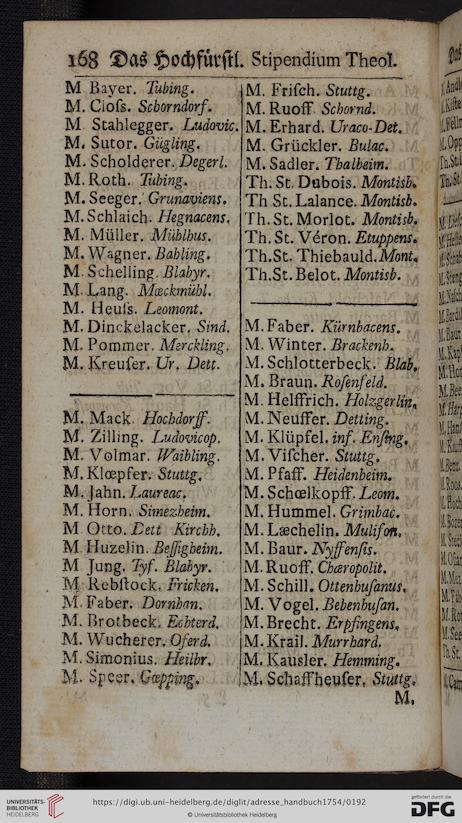 168 Das Hochfürstl. Stipendium Theol.
M Bayer. Tubing.
M. Cloſs. Schorndorf.
M Stahlegger. Ludovic.
M. Sutor. Gügling.
M. Scholderer. Degerl.
M. Roth. Tubing.
M. Seeger. Grunaviens.
M. Schlaich. Hegnacens.
M. Müller. Mühlhus.
M. Wagner. Bahling.
M Schelling. Blabyr.
M Lang. Mœckmühl.
M. Heuſs. Leomont.
M. Dinckelacker. Sind.
M. Pommer. Merckling.
M. Kreuſer. Ur. Dett.
M. Mack Hochdorff.
M. Zilling. Ludovicop.
M. Volmar. Waibling.
M. Klœpfer. Stuttg.
M. Jahn. Laureac.
M. Horn. Simezheim.
M Otto. Dett Kirchh.
M Huzelin Beſſigheim.
M Jung. Tyf. Blabyr.
M Rebſtock. Fricken.
M. Faber. Dornhan.
M. Brotbeck. Echterd.
M. Wucherer. Oferd.
M. Simonius. Heilbr.
M. Speer. Gœpping.
M. Friſch. Stuttg.
M. Ruoff Schornd.
M. Erhard. Uraco-Det.
M. Grückler. Bulac.
M. Sadler. Thalheim.
Th. St. Dubois. Montisb.
Th St. Lalance. Montisb.
Th. St. Morlot. Montisb.
Th. St. Véron. Etuppens.
Th. St. Thiebauld. Mont.
Th. St. Belot. Montisb.
M. Faber. Kürnbacens.
M. Winter. Brackenh.
M. Schlotterbeck. Blab.
M. Braun. Roſenfeld.
M. Helffrich. Holzgerlin.
M. Neuffer. Detting.
M. Klüpfel. inf. Enſing.
M. Viſcher. Stuttg.
M. Pfaff. Heidenheim.
M. Schœlkopff. Leom.
M. Hummel. Grimbac.
M. Læchelin. Muliſon.
M. Baur. Nyffenſis.
M. Ruoff. Chœropolit.
M. Schill. Ottenhuſanus.
M. Vogel. Bebenhuſan.
M. Brecht. Erpfingens.
M. Krail. Murrhard.
M. Kausler. Hemming.
M. Schaffheuſer. Stuttg.
M.
UNIVERSITÄTS-
BIBLIOTHEK
HEIDELBERG
https://digi.ub.uni-heidelberg.de/diglit/adresse_handbuch1754/0192
© Universitätsbibliothek Heidelberg
gefördert durch die
DFG